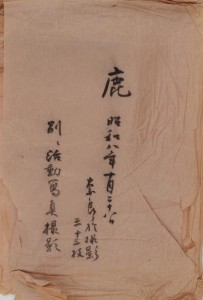 鹿
昭和八年十月二十八日
奈良ニ於撮影
三十二枚
別ニ活動寫真撮影